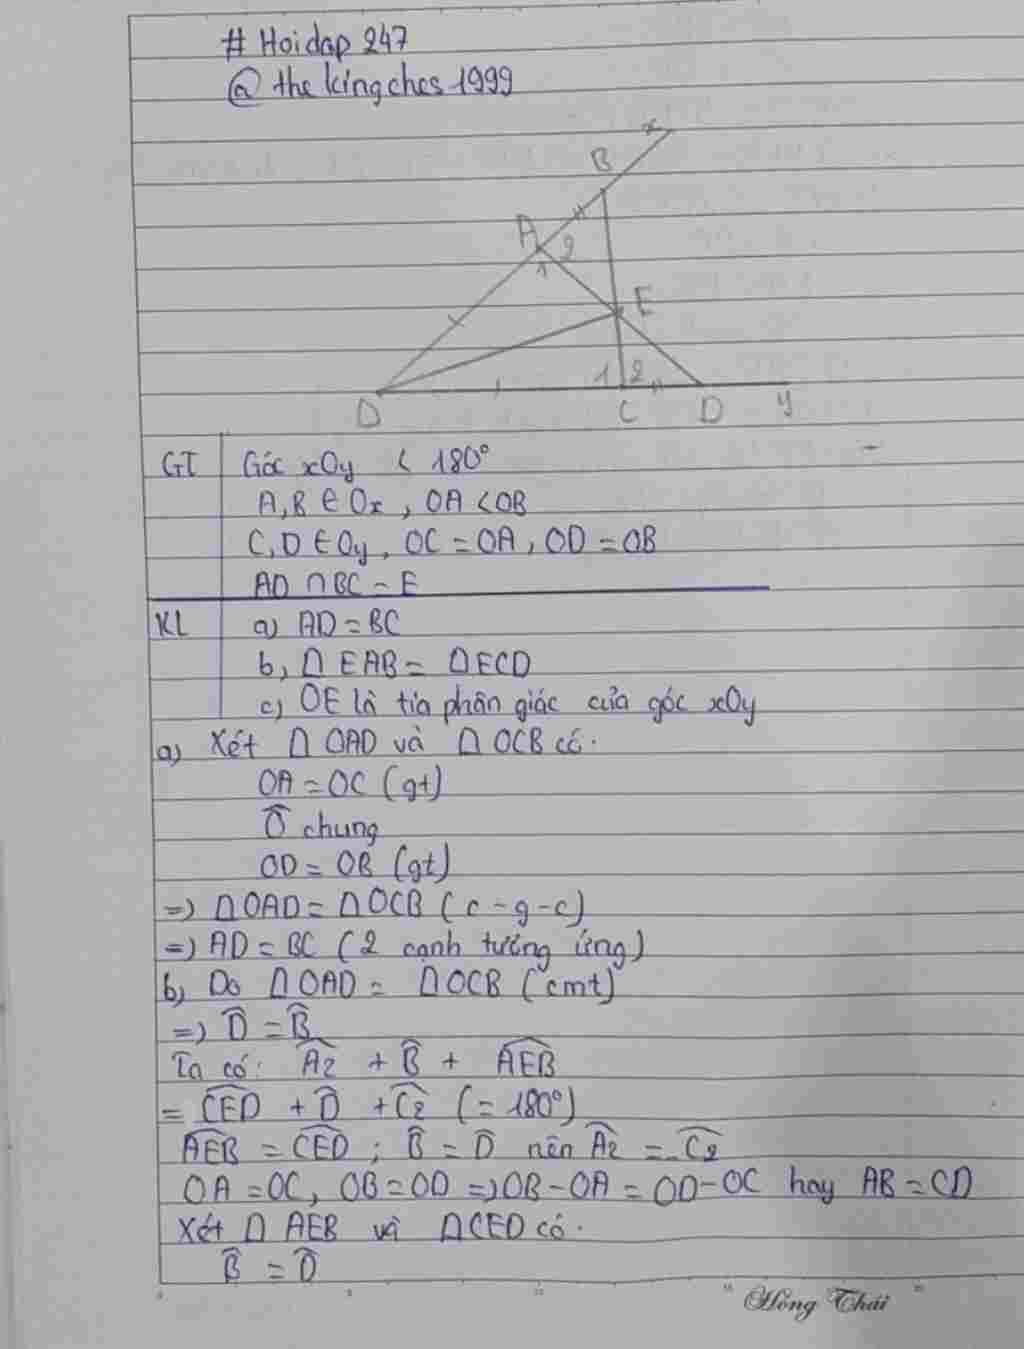 # Hoidap 247
@ thekingches1999
x
B
A
2
1
E
1 2
O C D y
GT Góc xOy < 180°
A, B ∈ Ox, OA < OB
C, D ∈ Oy, OC = OA, OD = OB
AD ∩ BC = E
KL a) AD = BC
b, Δ EAB = Δ ECD
c) OE là tia phân giác của góc xOy
a) Xét Δ OAD và Δ OCB có:
OA = OC (gt)
Ô chung
OD = OB (gt)
=) Δ OAD = Δ OCB (c-g-c)
=) AD = BC (2 cạnh tương ứng)
b, Do Δ OAD = Δ OCB (cmt)
=) D̂ = B̂
Ta có: Â2 + B̂ + AEB̂
= CED̂ + D̂ + Ĉ2 (= 180°)
AEB̂ = CED̂ ; B̂ = D̂ nên Â2 = Ĉ2
OA = OC, OB = OD =) OB - OA = OD - OC hay AB = CD
Xét Δ AEB và Δ CED có:
B̂ = D̂
Hồng Thái